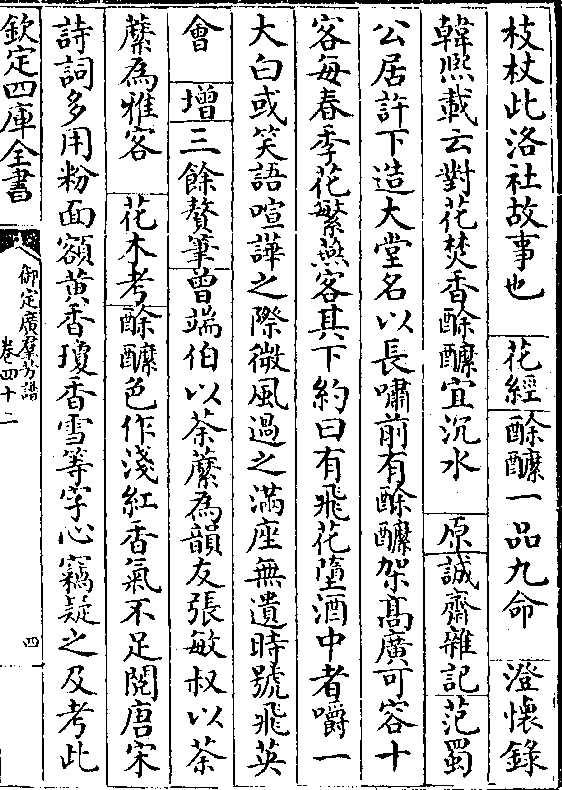 枝杖此洛社故事也　花經　酴醿一品九命　澄懷錄
韓熙載云對花焚香酴醿宜沉水　原　誠齋雜記　范蜀
公居許下造大堂名以長嘯前有酴醿架高廣可容十
客每春季花繁燕客其下約曰有飛花墮酒中者嚼一
大白或笑語喧譁之際微風過之滿座無遺時號飛英
會　增　三餘贅筆　曾端伯以荼蘼為韻友張敏叔以荼
蘼為雅客　花木考　酴醿色作淺紅香氣不足閱唐宋
詩詞多用粉面額黃香瓊香雪等字心竊疑之及考此
欽定四庫全書
御定廣羣芳譜
卷四十二
四